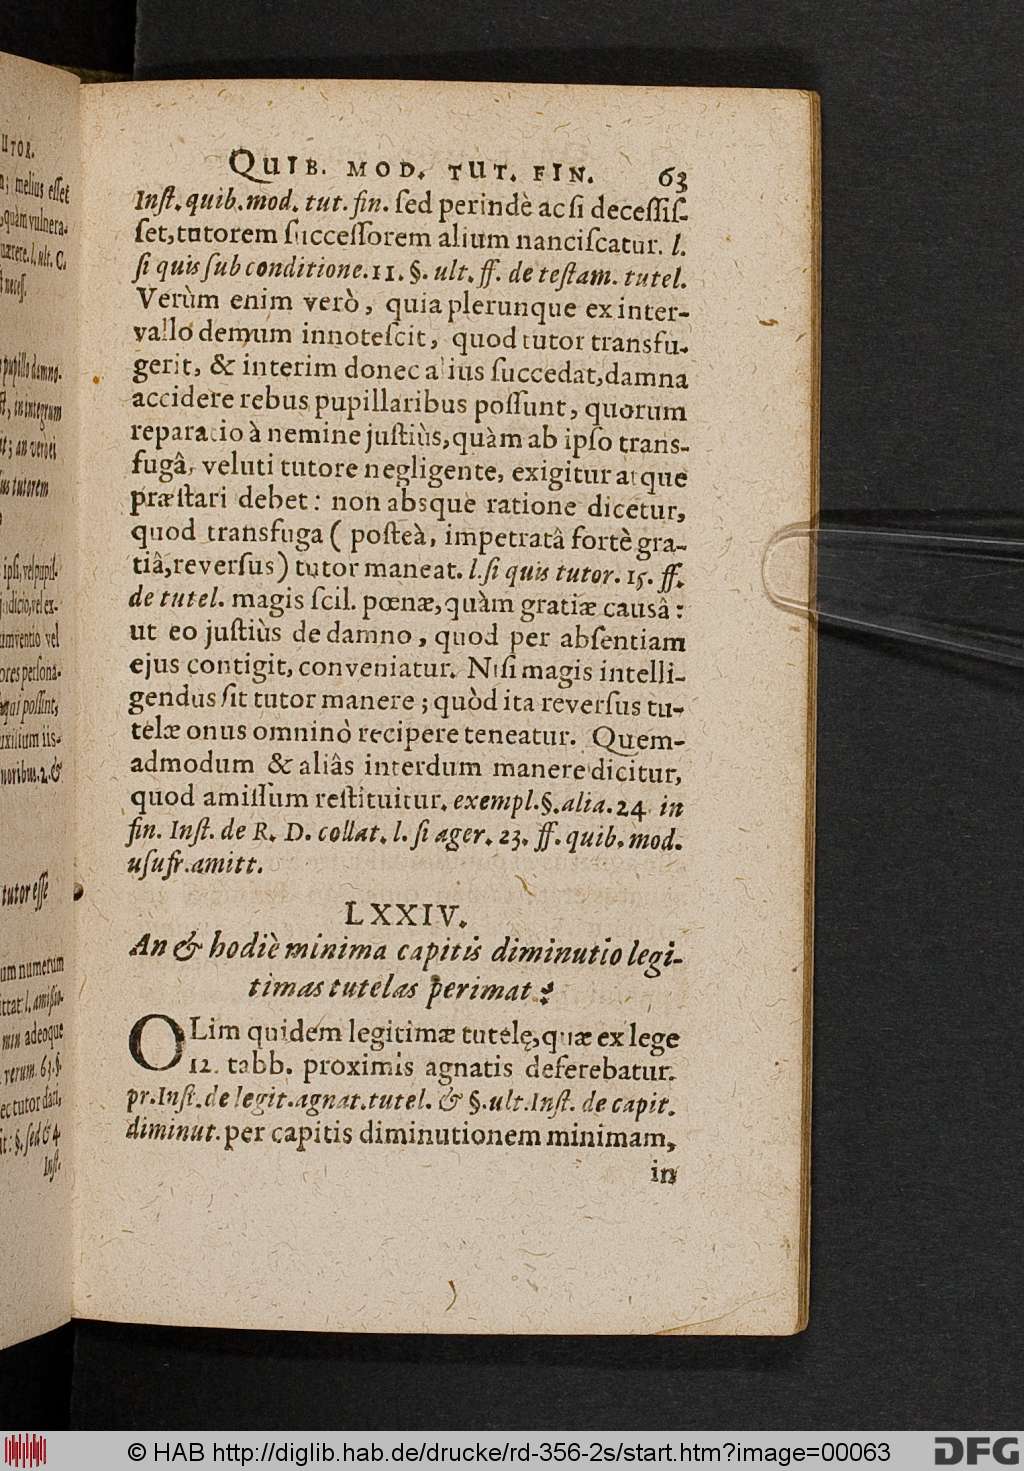 QUIB. MOD. TUT. FIN. 63
Inſt. quib. mod. tut. fin. ſed perindè ac ſi deceſſiſ-
ſet, tutorem ſucceſſorem alium nanciſcatur. l.
ſi quis ſub conditione. 11. §. ult. ff. de teſtam. tutel.
Verùm enim verò, quia plerunque ex inter-
vallo demum innoteſcit, quod tutor transfu-
gerit, & interim donec alius ſuccedat, damna
accidere rebus pupillaribus poſſunt, quorum
reparatio à nemine juſtiùs, quàm ab ipſo trans-
fugâ, veluti tutore negligente, exigitur atque
præſtari debet: non absque ratione dicetur,
quod transfuga ( poſteà, impetratâ fortè gra-
tiâ, reverſus) tutor maneat. l. ſi quis tutor. 15. ff.
de tutel. magis ſcil. pœnæ, quàm gratiæ causâ:
ut eo juſtiùs de damno, quod per abſentiam
ejus contigit, conveniatur. Niſi magis intelli-
gendus ſit tutor manere; quòd ita reverſus tu-
telæ onus omninò recipere teneatur. Quem-
admodum & aliâs interdum manere dicitur,
quod amiſſum reſtituitur. exempl. §. alia. 24 in
fin. Inſt. de R. D. collat. l. ſi ager. 23. ff. quib. mod.
uſuſr. amitt.
LXXIV.
An & hodiè minima capitis diminutio legi-
timas tutelas perimat?
OLim quidem legitimæ tutelę, quæ ex lege
12. tabb. proximis agnatis deferebatur.
pr. Inſt. de legit. agnat. tutel. & §. ult. Inſt. de capit.
diminut. per capitis diminutionem minimam,
in
© HAB http://diglib.hab.de/drucke/rd-356-2s/start.htm?image=00063
DFG